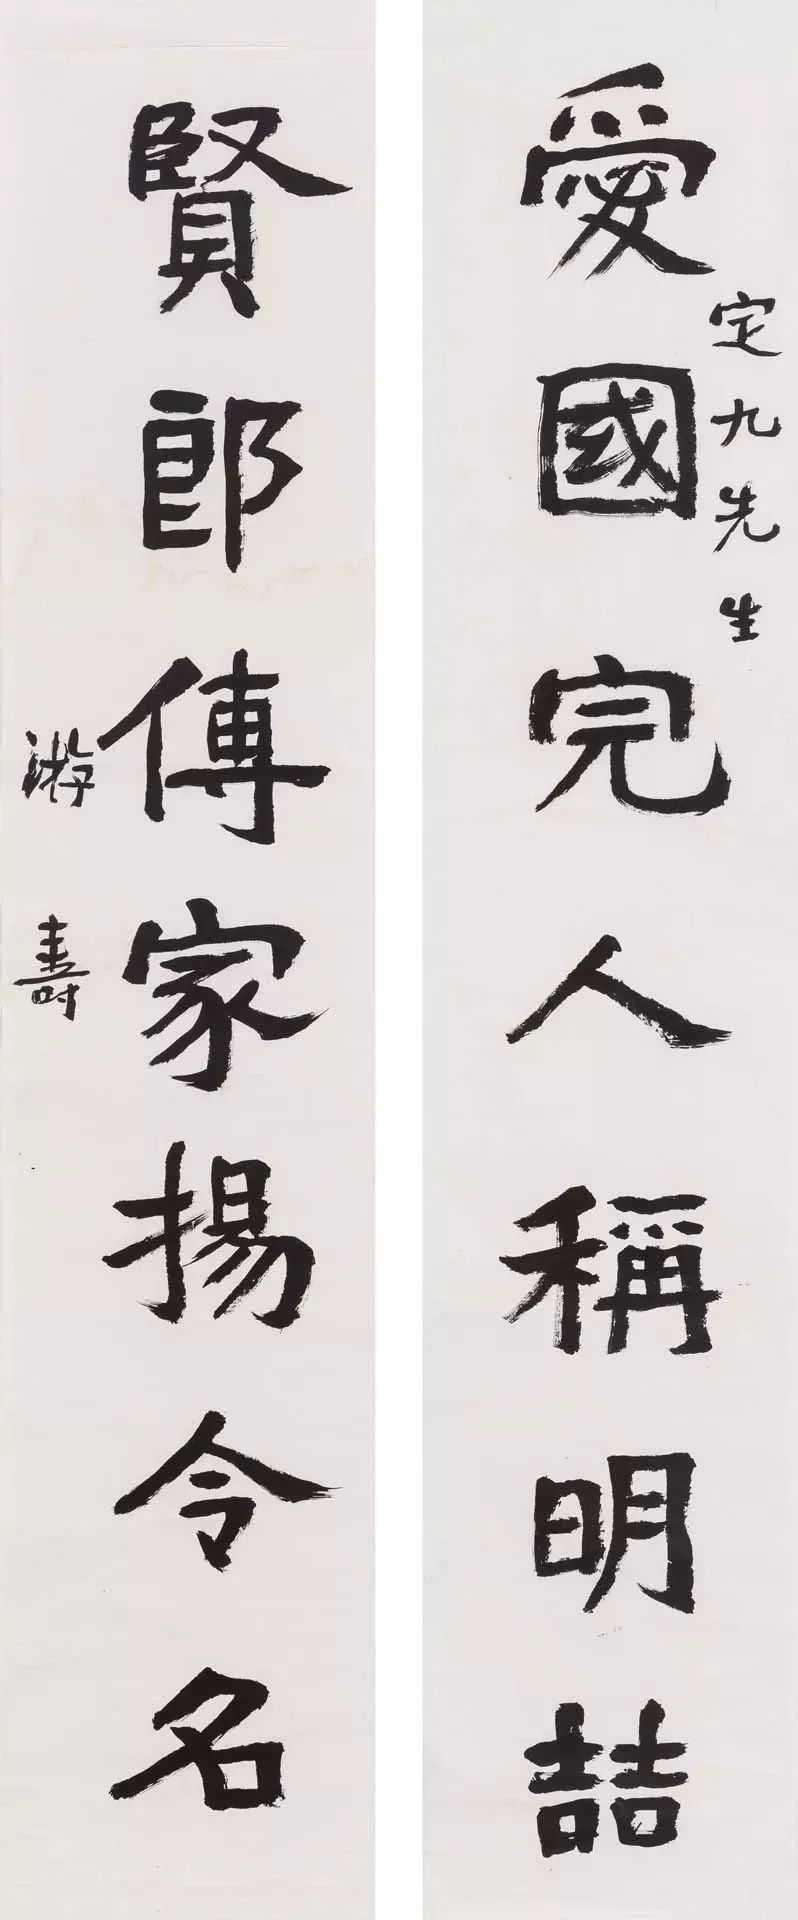 愛國完人稱明喆
定九先生
賢郎傳家揚令名
游壽